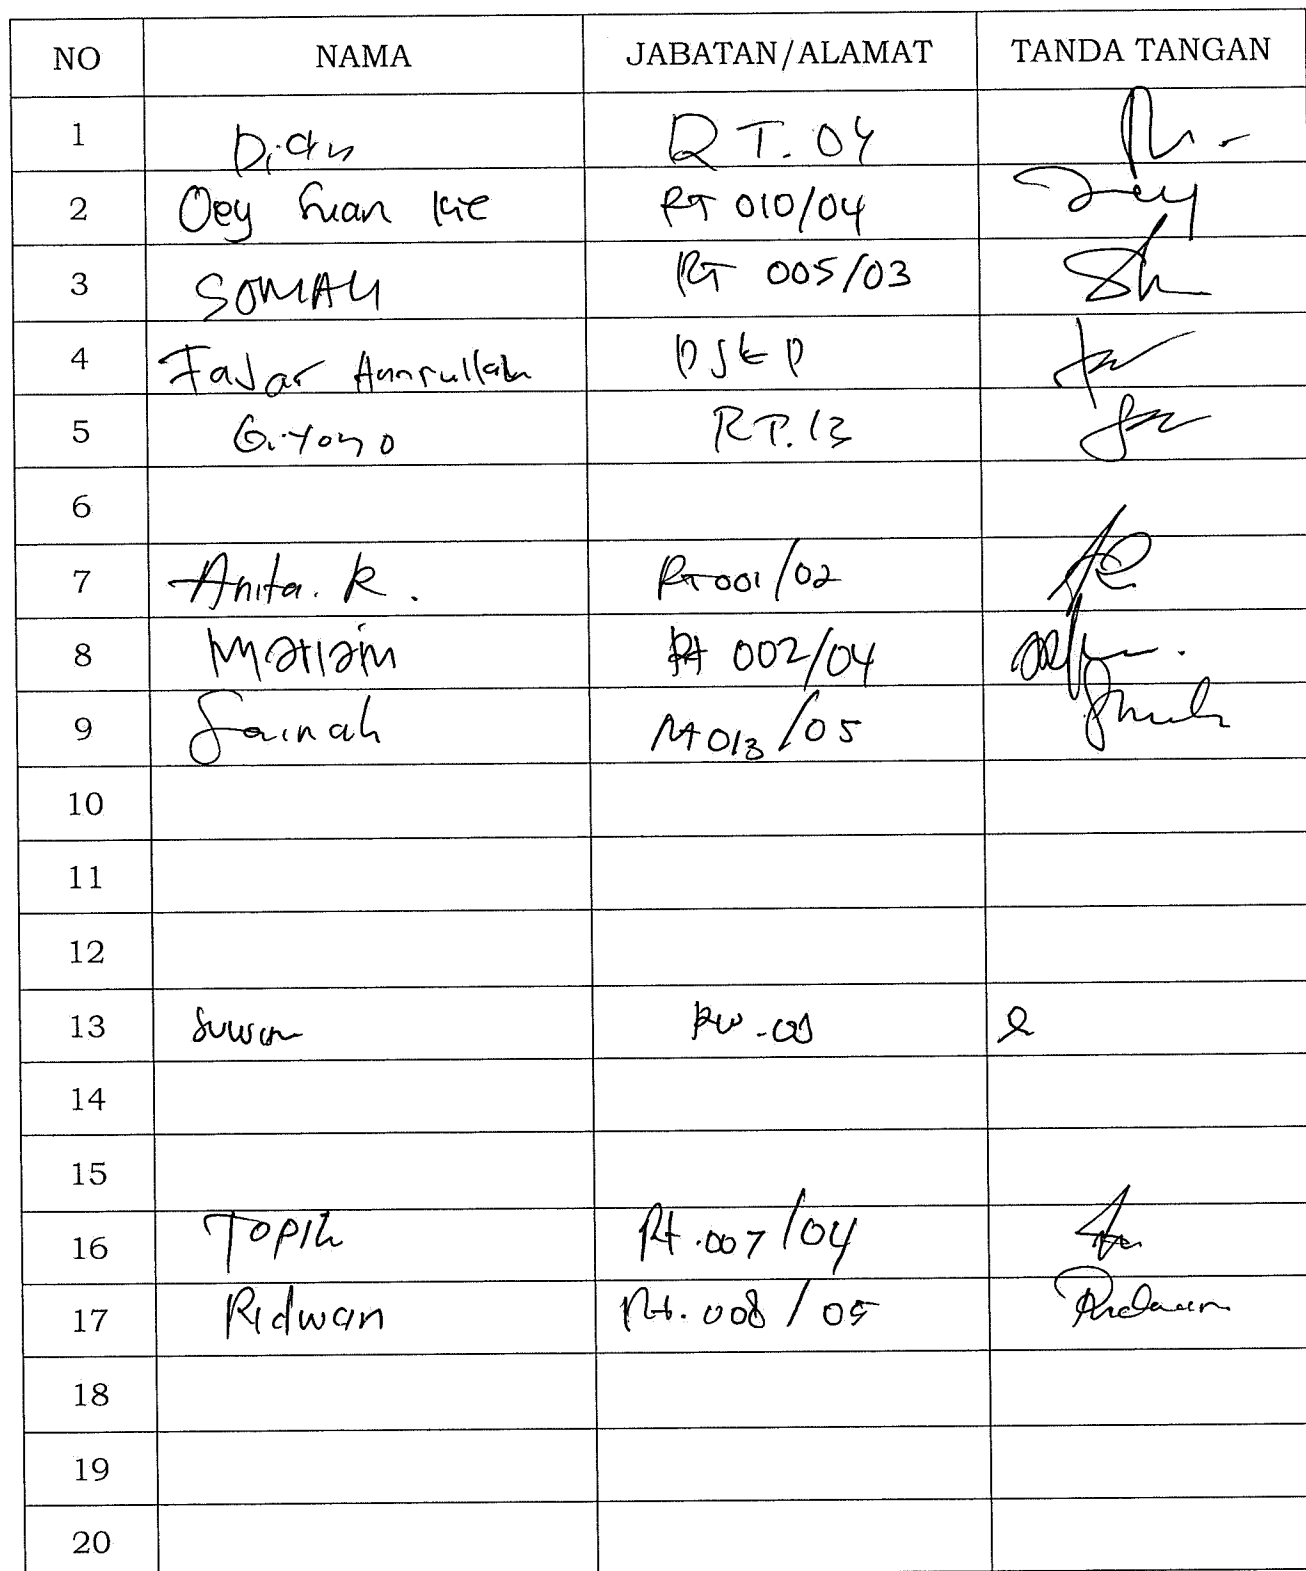 NO NAMA JABATAN/ALAMAT TANDA TANGAN
1 Dian RT. 04
2 Oey Suan Kie RT 010/04
3 SOMALI RT 005/03
4 Fajar Amrullah
5 Giyono RT. 13
6
7 Anita. R. RT 001/02
8 Mariam Rt 002/04
9 Sainah Rt 013/05
10
11
12
13 Suwan RW
14
15
16 Topik Rt. 007/04
17 Ridwan Rt. 008/05 Ridwan
18
19
20